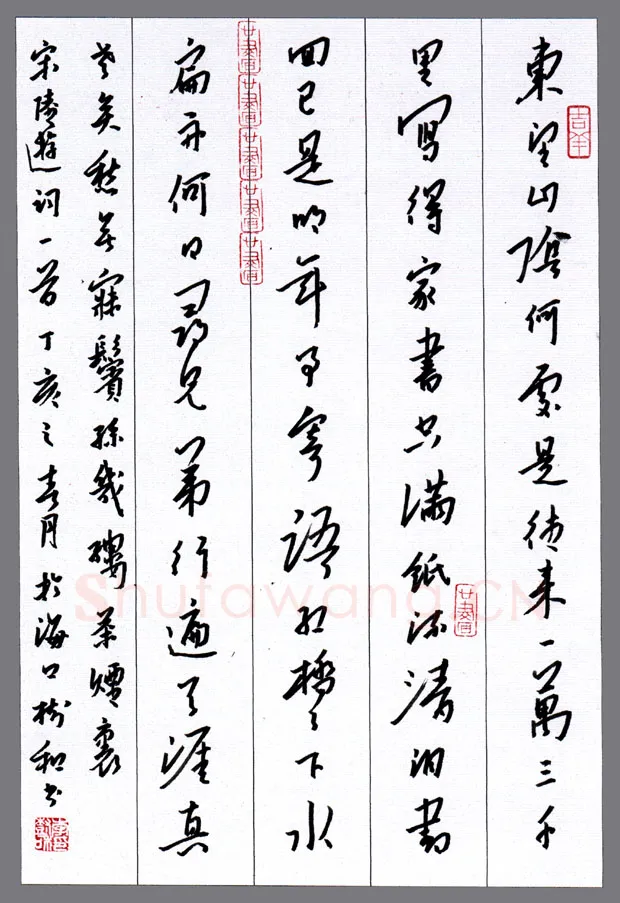 東望山陰何處是往来一萬三千
里寫得家書空滿紙流清泪書
回已是明年事寄語紅橋々下水
扁舟何日尋兄弟行遍天涯真
老矣愁無寐鬢絲幾縷茶煙裏
宋陸游詞一首丁亥之春月於海口樹和书
吉羊
Shufawang.CN